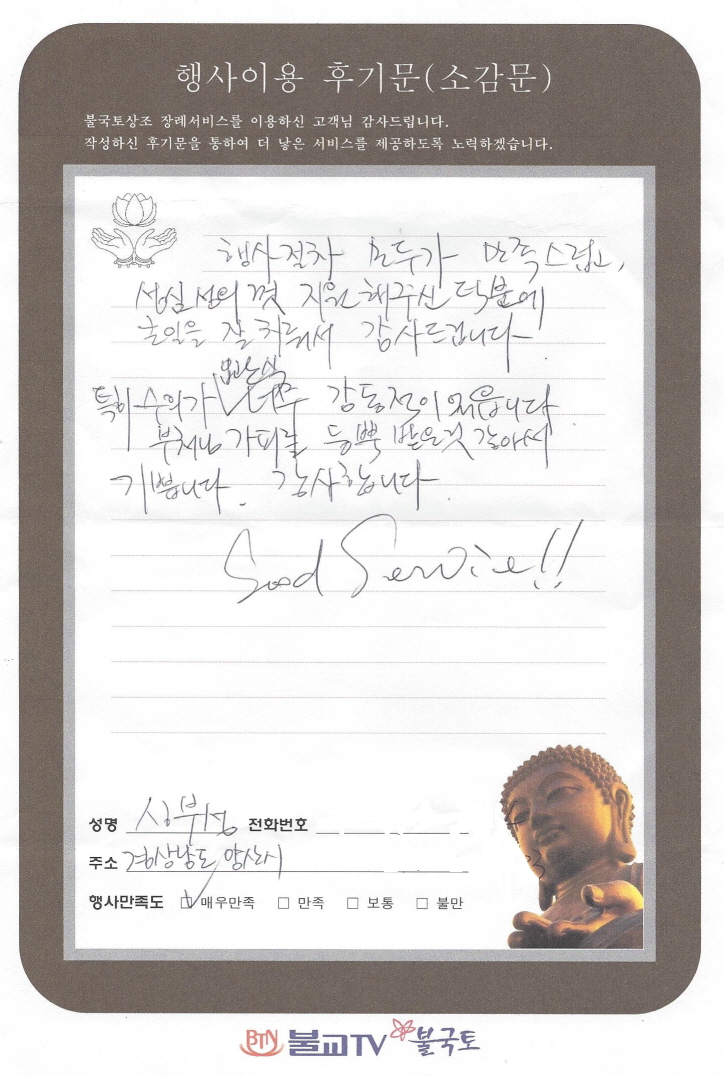 행사이용 후기문(소감문)
불국토상조 장례서비스를 이용하신 고객님 감사드립니다.
작성하신 후기문을 통하여 더 낳은 서비스를 제공하도록 노력하겠습니다.
행사절차 모두가 만족스럽고,
성실 성의 껏 지원해주신 덕분에
큰일을 잘 치뤄서 감사드립니다.
특히 수의가 너무 감동적이 었읍니다
부처님 가피를 듬뿍 받은것 같아서
기쁩니다. 감사합니다.
Good Service!!
성명 전화번호
주소 경상남도 양산시
행사만족도 매우만족 만족 보통 불만
BTN 불교TV 불국토